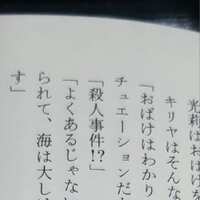 光莉はおばけを
キリヤはそんな
「おばけはわかり
チュエーションだ
「殺人事件!?」
「よくあるじゃな
られて、海は大し
す」